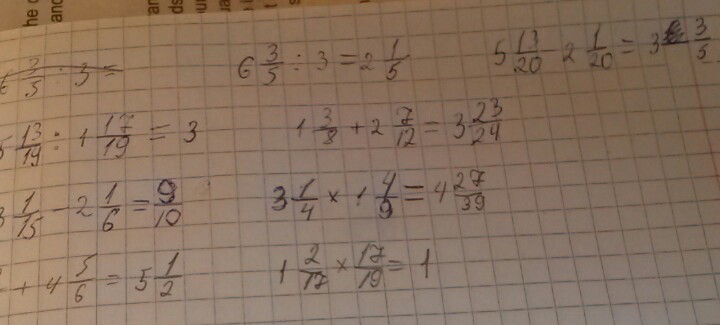 6 3/5 : 3 =
6 3/5 : 3 = 2 1/5
5 13/20 - 2 1/20 = 3 3/5
5 13/19 : 1 17/19 = 3
1 3/8 + 2 7/12 = 3 23/24
3 1/15 - 2 1/6 = 9/10
3 1/4 × 1 4/9 = 4 27/39
+ 4 5/6 = 5 1/2
1 2/17 × 17/19 = 1